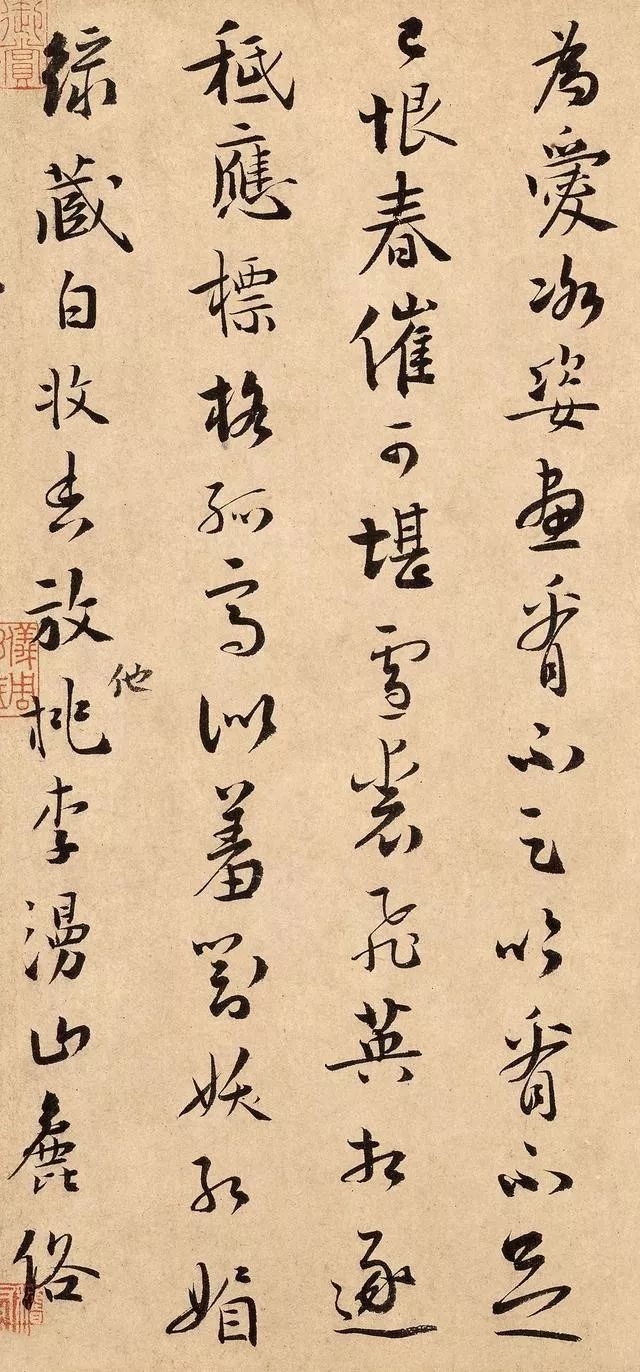 為愛冰姿畫看不足吟看不足
已恨春催可堪雪裏飛英相逐
秪應標格孤高似羞對妖紅媚
綠藏白收香放他桃李漫山麤俗
御賞